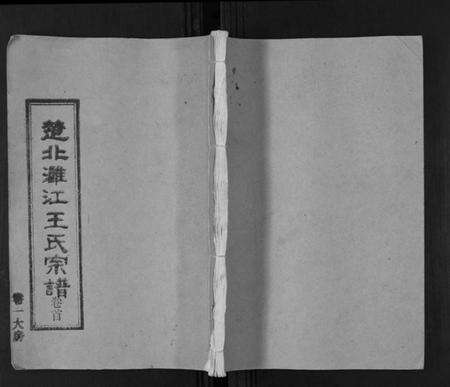 楚北濰江王氏宗譜
卷首
一大房